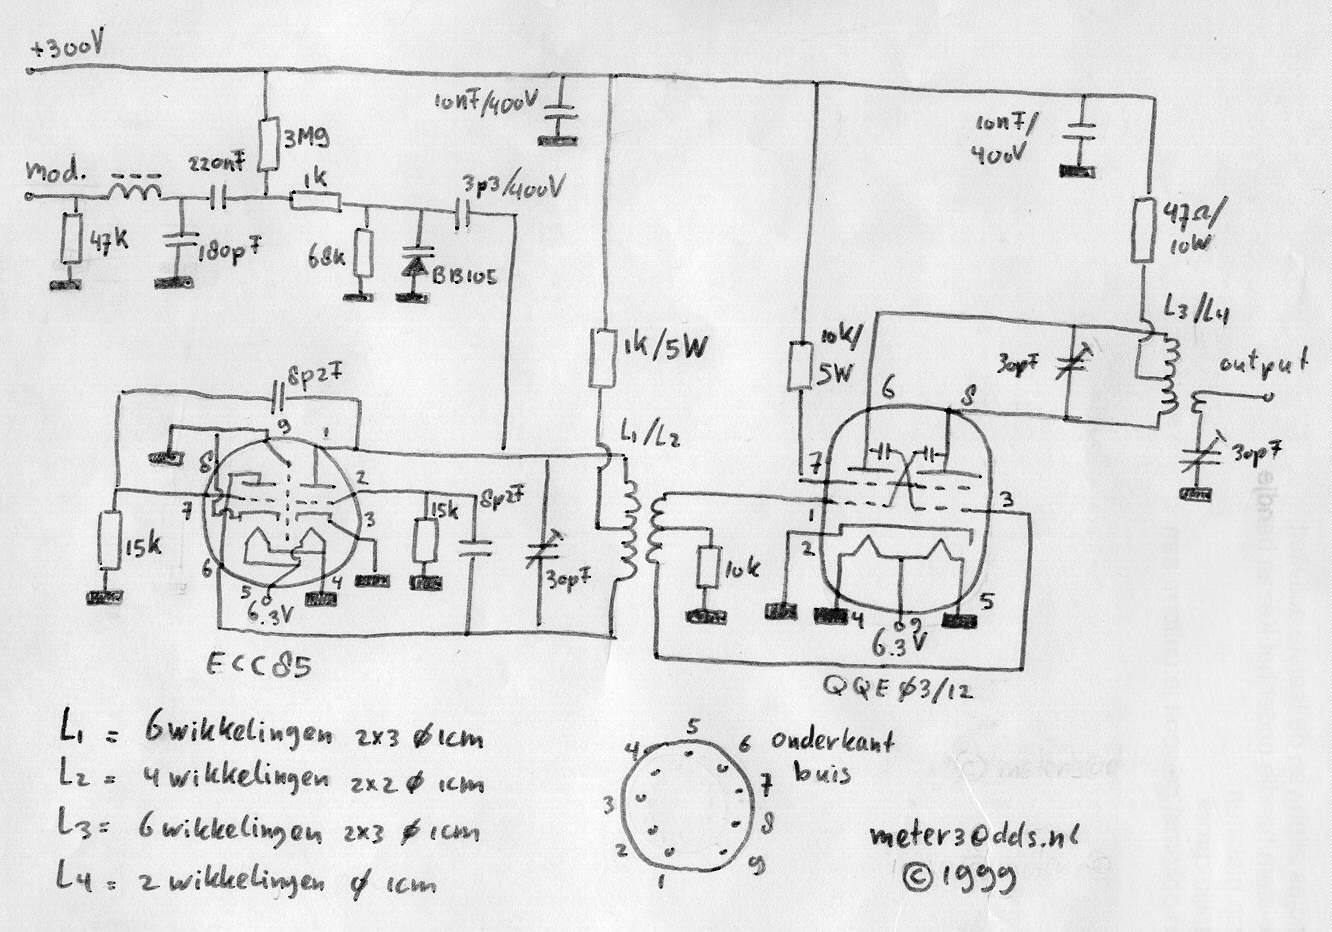 +300V
10nF/400V
10nF/
400V
3M9
mod.
220nF
1k
3p3/400V
47k
180pF
68k
BB105
47Ω/
10W
1k/5W
10k/
5W
L3/L4
30pF
output
8p2F
L1/L2
30pF
9
1
8
2
7
3
6
5
4
15k
15k
8p2F
30pF
6.3V
10k
6
8
7
1
2
3
4
9
5
6.3V
ECC85
QQE ø3/12
L1 = 6 wikkelingen 2x3 ø 1cm
L2 = 4 wikkelingen 2x2 ø 1cm
L3 = 6 wikkelingen 2x3 ø 1cm
L4 = 2 wikkelingen ø 1cm
5
4
6
3
7
2
8
1
9
onderkant
buis
meter3@dds.nl
© 1999